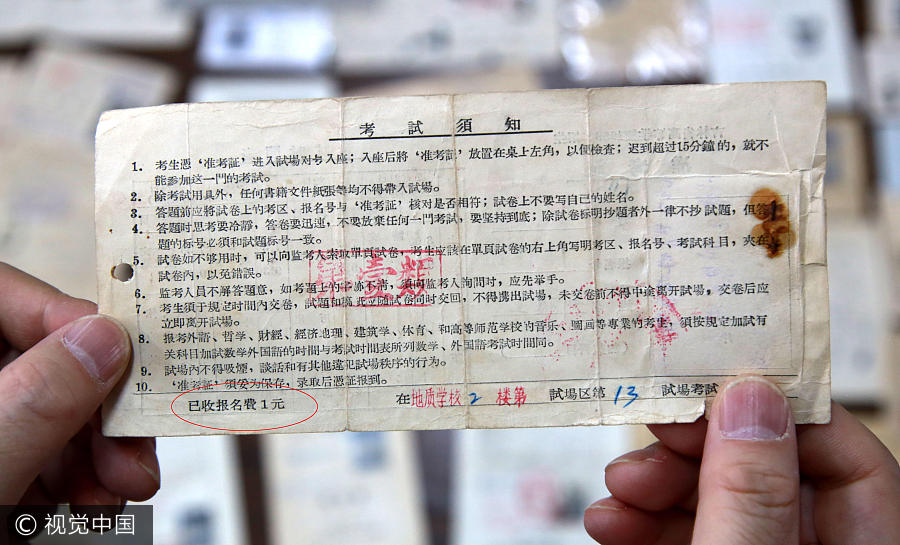 考試須知
1. 考生憑‘准考証’進入試場对号入座；入座后將‘准考証’放置在桌上左角，以便檢查；迟到超过15分鐘的，就不
能参加这一門的考試。
2. 除考試用具外，任何書籍文件紙張等均不得帶入試場。
3. 答題前应將試卷上的考区、报名号与‘准考証’核对是否相符；試卷上不要写自己的姓名。
4. 答題时思考要冷靜，答卷要迅速，不要放棄任何一門考試，要坚持到底；除試卷标明抄題者外一律不抄試題，但答
題的标号必須和試題标号一致。
5. 試卷如不够用时，可以向监考人索取單頁試卷，考生应該在單頁試卷的右上角写明考区、报名号、考試科目，夾在
試卷內，以免錯誤。
6. 监考人員不解答題意，如考題上的字迹不清，須向监考人詢問时，应先举手。
7. 考生須于規定时間內交卷，試題和稿紙应隨試卷同时交回，不得携出試場，未交卷前不得中途离开試場，交卷后应
立即离开試場。
8. 报考外語、哲学、財經、經济地理、建筑学、体育、和高等师范学校的音乐、圖画等專業的考生，須按規定加試有
关科目加試数学外国語的时間与考試时間表所列数学、外国語考試时間同。
9. 試場內不得吸煙，談話和有其他違犯試場秩序的行为。
10. ‘准考証’須妥为保存，录取后憑証报到。
已收报名費1元 在地质学校2楼第 試場区第13 試場考試
© 视觉中国